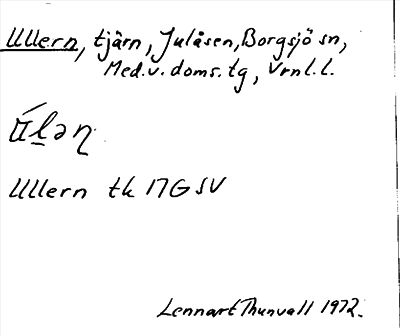 Ullern, tjärn, Julåsen, Borgsjö sn,
Med.v. doms.tg, Vrnl.l.
Ullern tk 17G SV
Lennart Thunvall 1972.